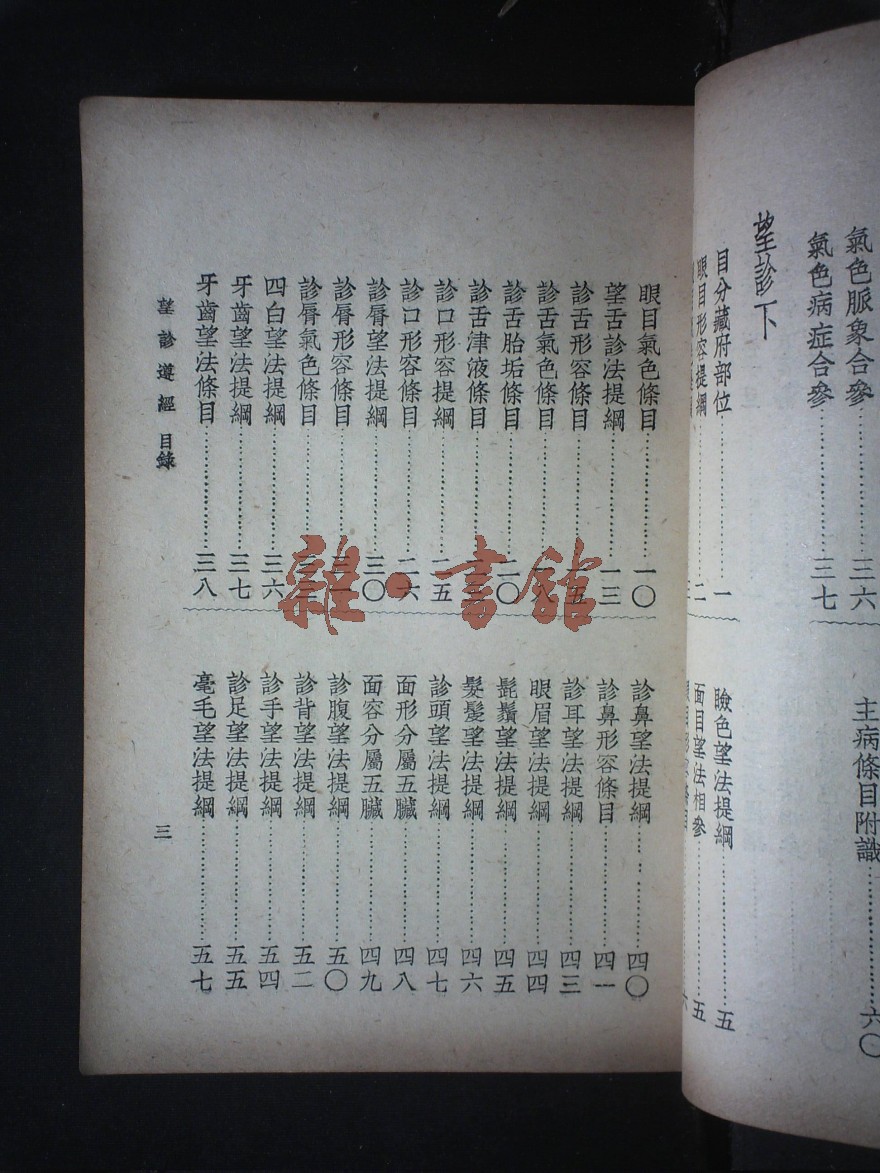 氣色脈象合參……三六
氣色病症合參……三七
望診下
目分藏府部位……一
眼目形容提綱……二
主病條目附識……六〇
瞼色望法提綱……五
面目望法相參……五
眼目氣色條目……一〇
望舌診法提綱……一三
診舌形容條目……一五
診舌氣色條目……一八
診舌胎垢條目……二〇
診舌津液條目……
診口形容提綱……二五
診口形容條目……二六
診脣望法提綱……三〇
診脣形容條目……三一
診脣氣色條目……
四白望法提綱……三六
牙齒望法提綱……三七
牙齒望法條目……三八
診鼻望法提綱……四〇
診鼻形容條目……四一
診耳望法提綱……四三
眼眉望法提綱……四四
髭鬚望法提綱……四五
髮髲望法提綱……四六
診頭望法提綱……四七
面形分屬五臟……四八
面容分屬五臟……四九
診腹望法提綱……五〇
診背望法提綱……五二
診手望法提綱……五四
診足望法提綱……五五
毫毛望法提綱……五七
望診遵經 目錄
三
雜·書館